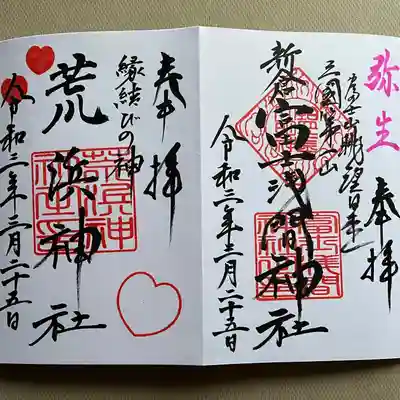 弥生
奉拝
三國第一山
新倉富士浅間神社
令和三年三月二十五日
奉拝
縁結びの神
荒浜神社
令和三年三月二十五日